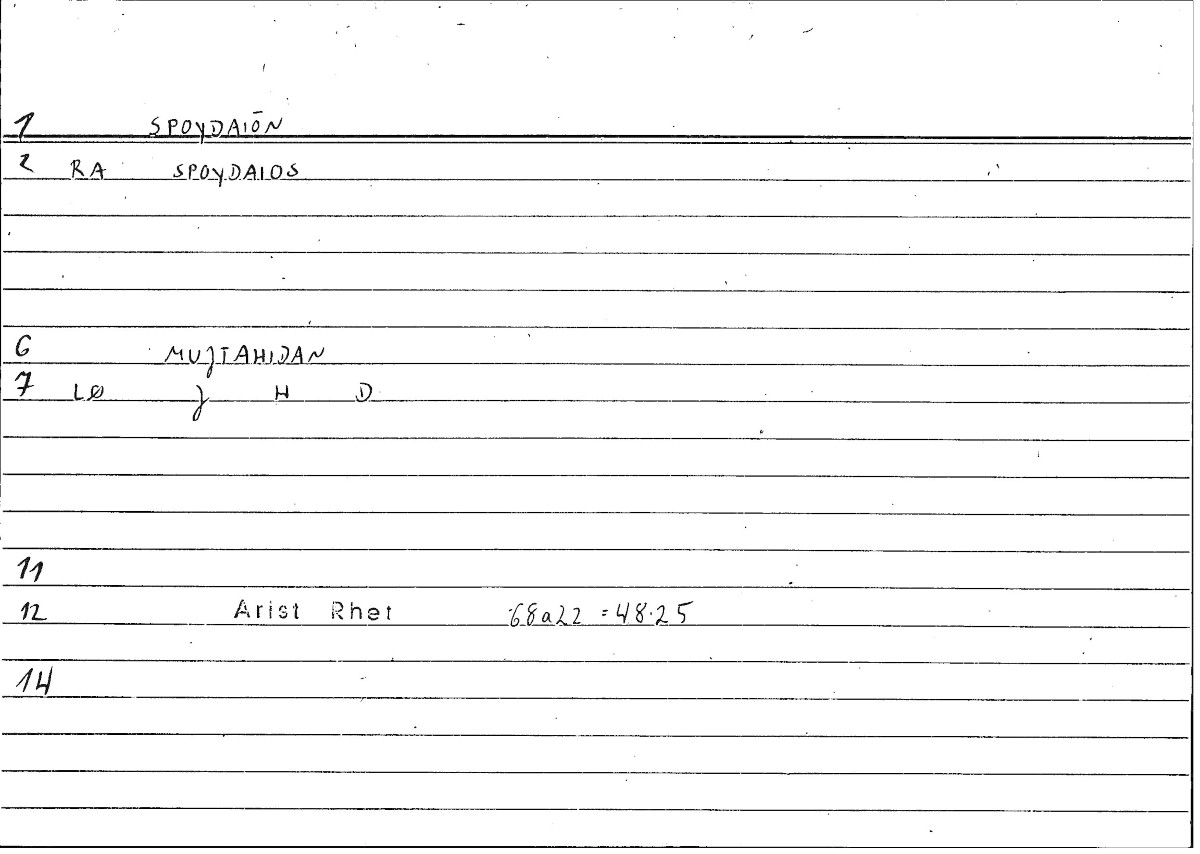 1 SPOYDAIŌN
2 RA SPOYDAIOS
6 MUJTAHIDAN
7 LØ J H D
11
12 Arist Rhet 68a22 = 48.25
14